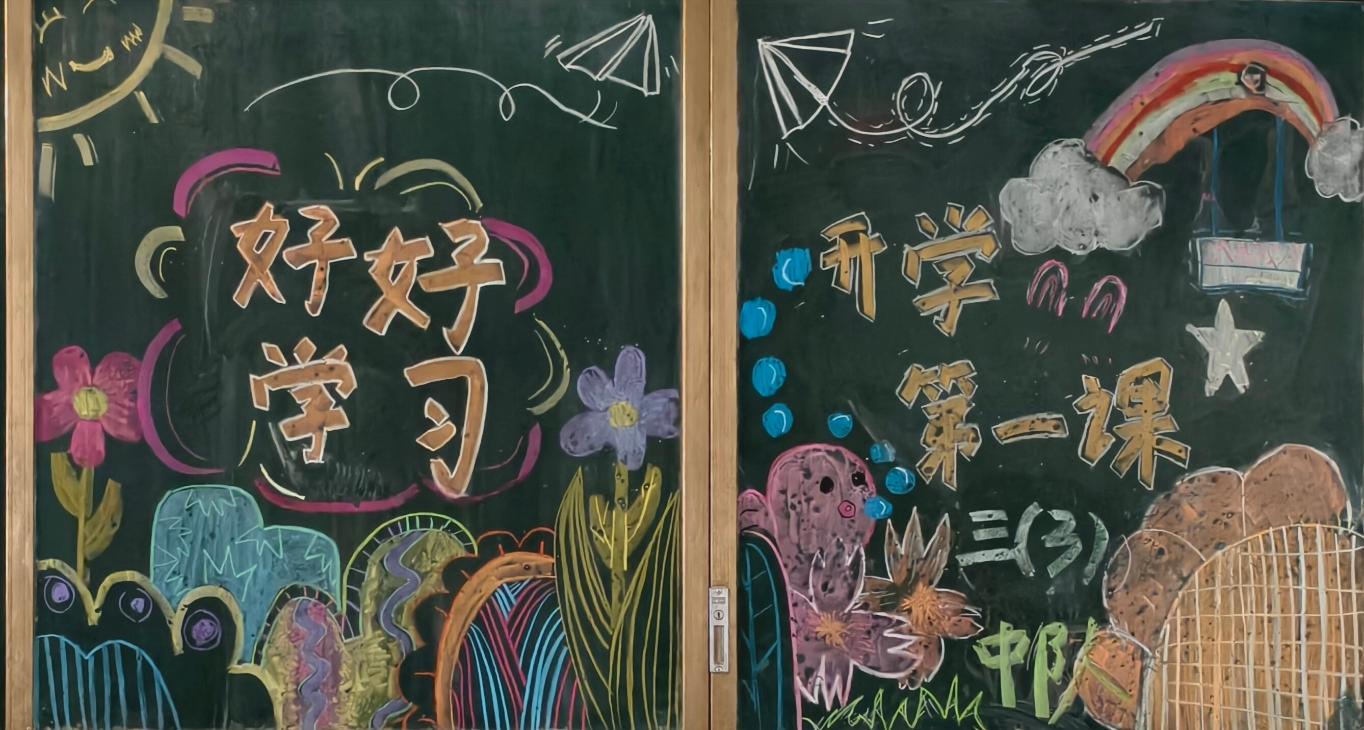 好好
学习
开学
第一课
三(3)
中队